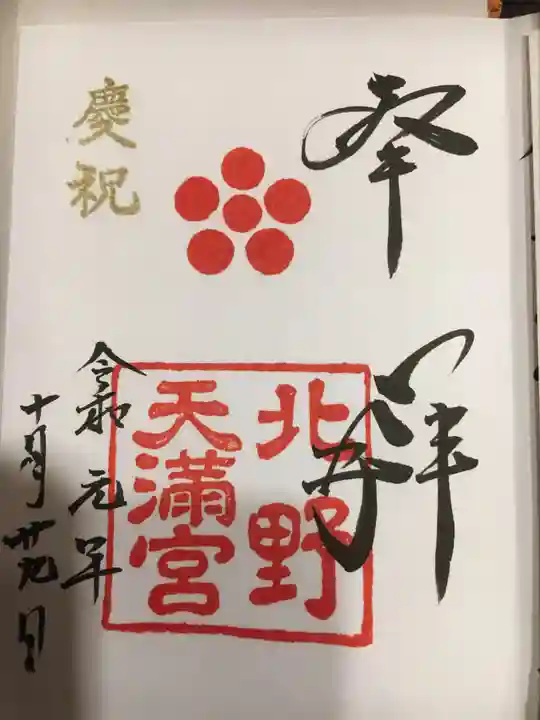 奉拝
北野
天満宮
慶祝
令和元年
十月廿九日